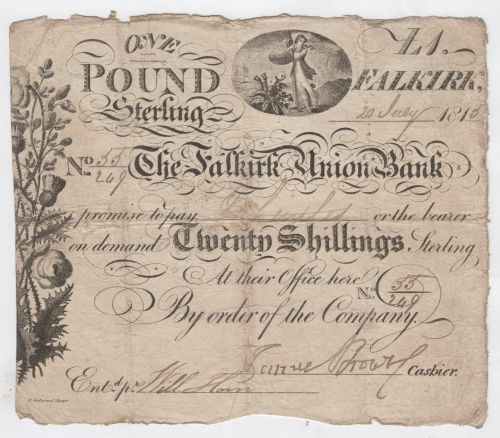 ONE
POUND
Sterling
£1.
FALKIRK,
20 July 1813
No. 55/249
The Falkirk Union Bank
promise to pay or the bearer
on demand Twenty Shillings Sterling
At their Office here
No. 55/249
By order of the Company.
Brown Cashier.
Entd. pr. Will